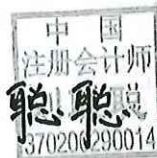 中国
注册会计师
聪聪
370200290014